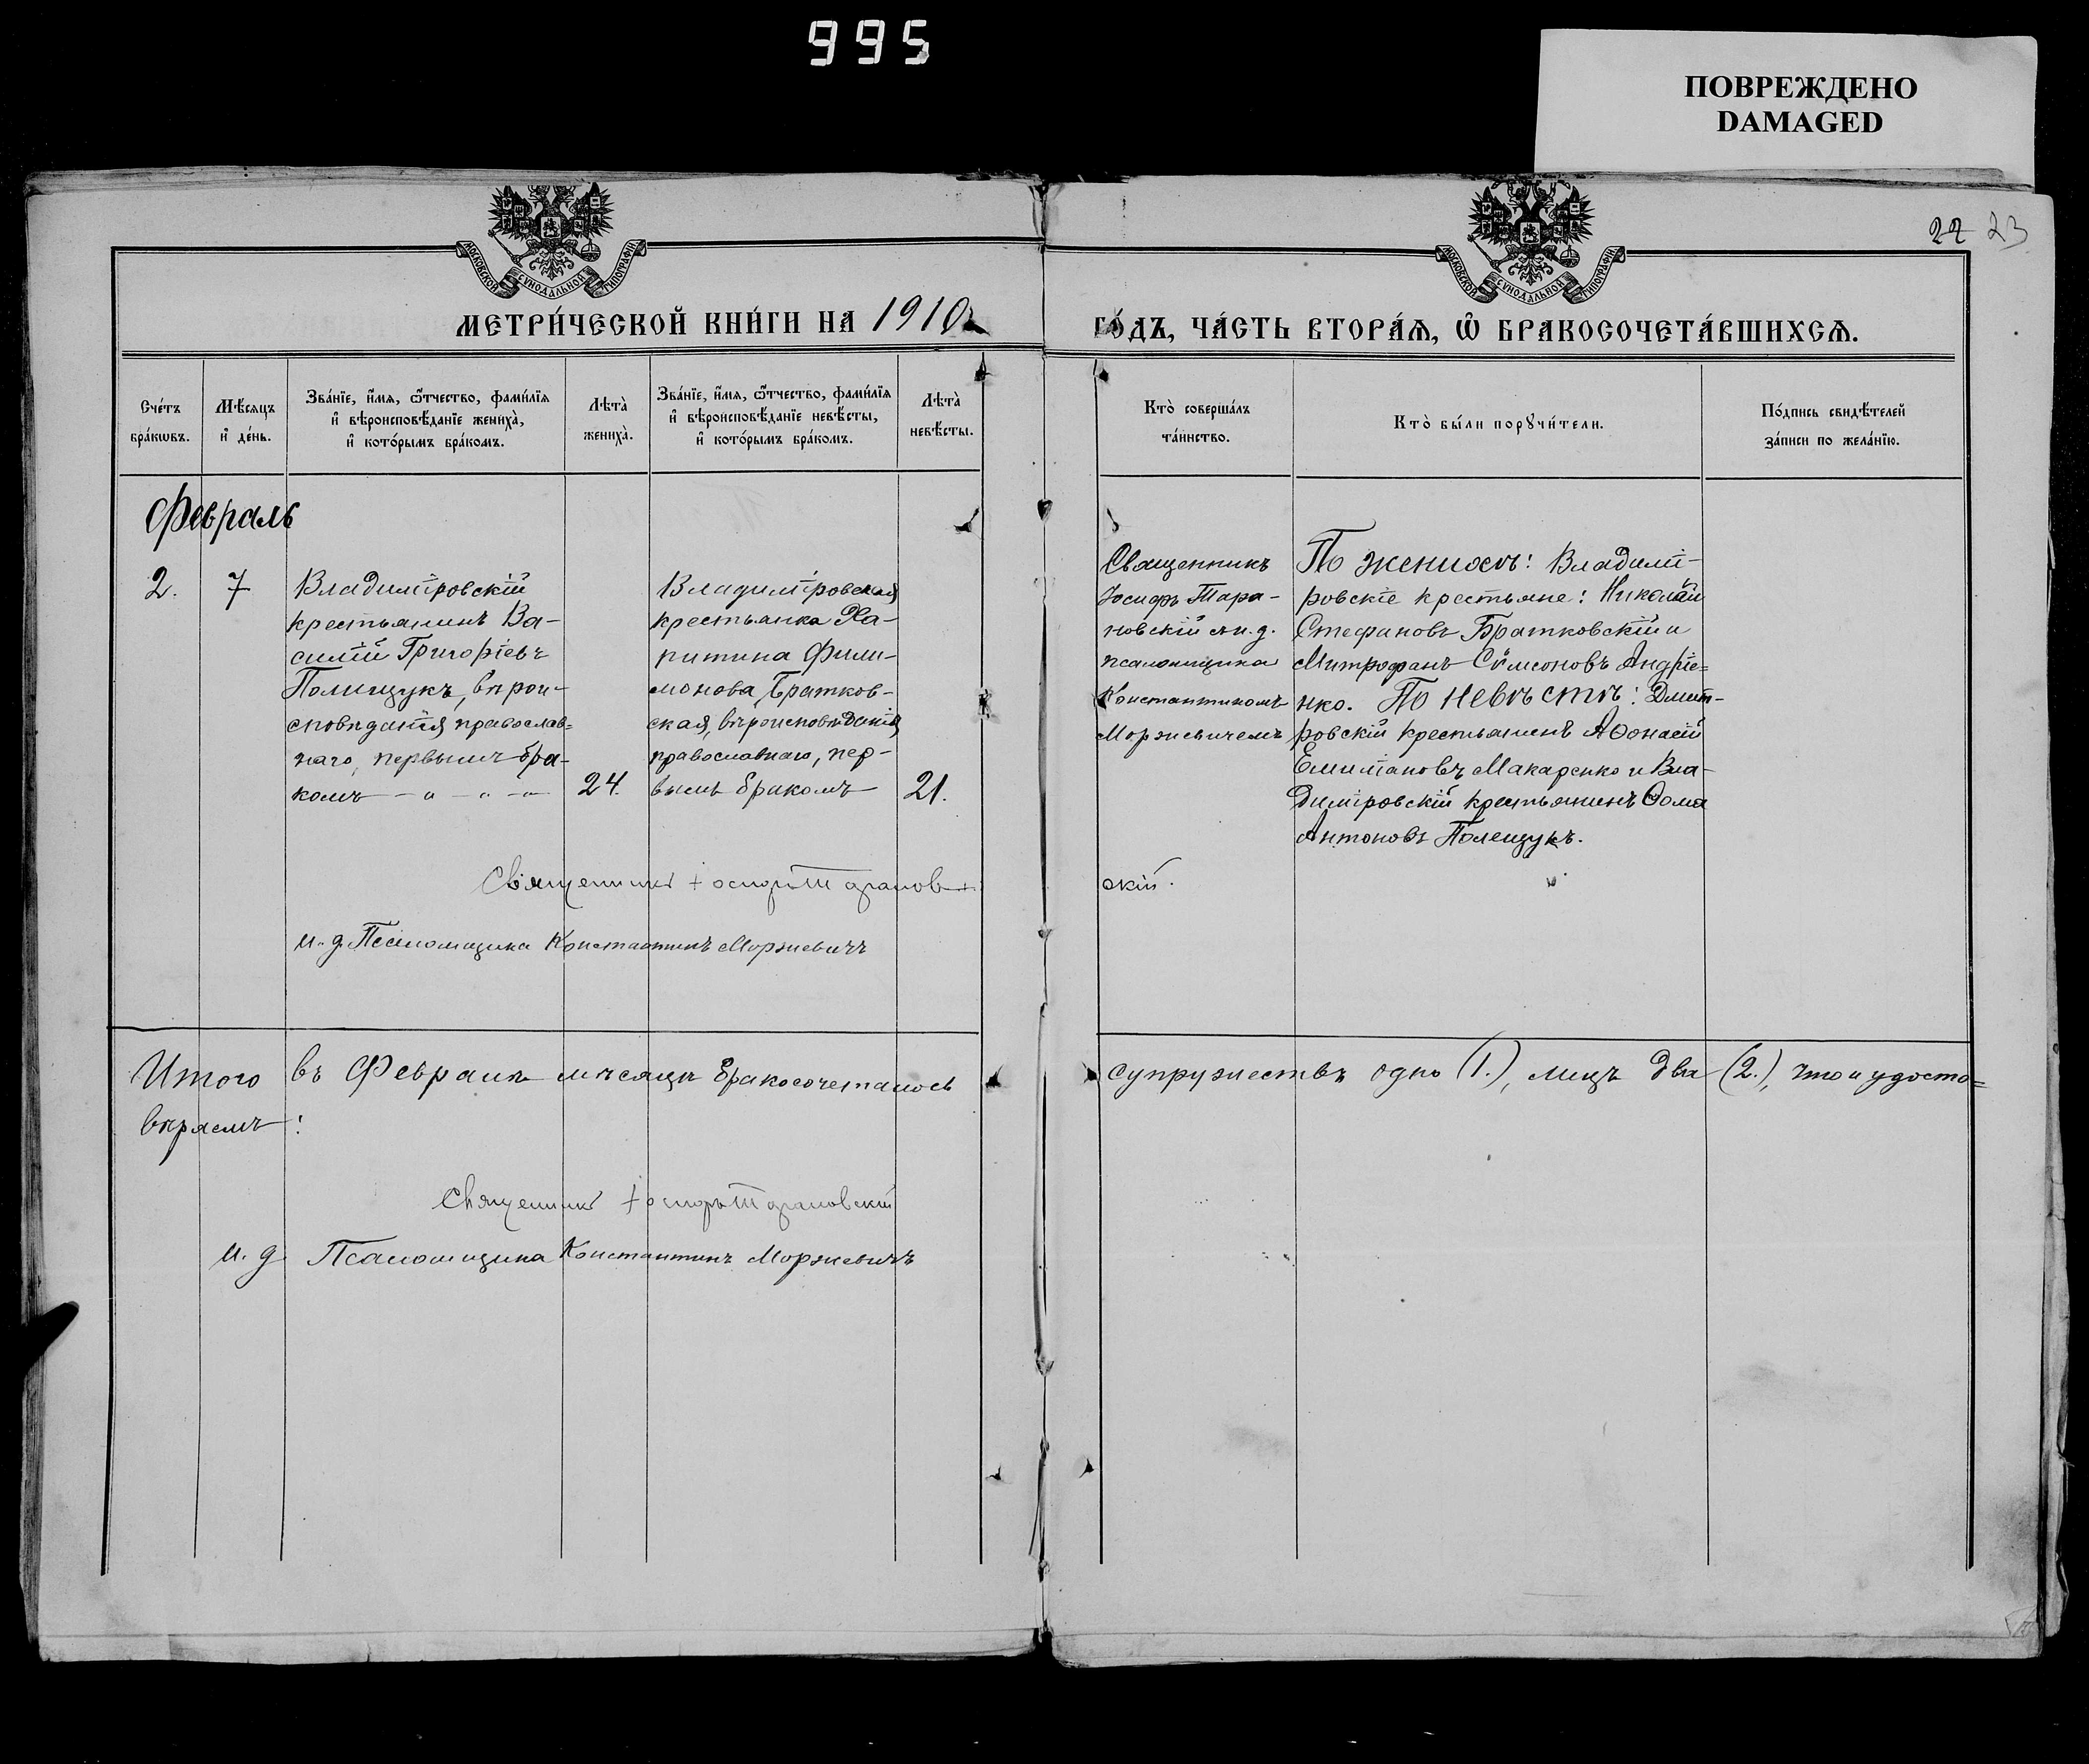 995
ПОВРЕЖДЕНО
DAMAGED
22 23
МОСКОВСКОЙ СѴНОДАЛЬНОЙ ТИПОГРАФІИ
МОСКОВСКОЙ СѴНОДАЛЬНОЙ ТИПОГРАФІИ
МЕТРИ́ЧЕСКОЙ КНИ́ГИ НА 1910
ГО́ДЪ, ЧА́СТЬ ВТОРА́Ѧ, Ѽ БРАКОСОЧЕТА́ВШИХСѦ.
Сче́тъ
бра́кѡвъ.
Мѣ́сяцъ
и҆ де́нь.
Зва́нїе, и҆́мя, ѻ҆́тчество, фами́лїя
и҆ вѣроисповѣ́данїе жениха̀,
и҆ кото́рымъ бра́комъ.
Лѣта̀
жениха̀.
Зва́нїе, и҆́мя, ѻ҆́тчество, фами́лїя
и҆ вѣроисповѣ́данїе невѣ́сты,
и҆ кото́рымъ бра́комъ.
Лѣта̀
невѣ́сты.
Кто̀ соверша́лъ
та́инство.
Кто̀ бы́ли порꙋчи́тели.
По́дпись свидѣ́телей
за́писи по жела́нїю.
Февраль
2.
7
Владимїровскій
крестьянинъ Ва-
силій Григоріевъ
Полищукъ, вѣрои-
сповѣданія православ=
наго, первымъ бра-
комъ — „ — „ — „
24.
Владимїровская
крестьянка Ха-
ритина Фили-
монова Братков-
ская, вѣроисповѣданія
православнаго, пер-
вымъ бракомъ
21.
Священникъ
Іосифъ Тара-
новскій с и. д.
псаломщика
Константиномъ
Моржевичемъ
По женихѣ: Владимї-
ровскіе крестьяне: Николай
Стефановъ Братковскій и
Митрофанъ Сѵмеоновъ Андріе=
нко. По невѣстѣ: Дмит-
ровскій крестьянинъ Аѳонасій
Емиліановъ Макаренко и Вла-
димїровскій крестьянинъ Ѳома
Антоновъ Полещукъ.
Священникъ Іосифъ Таранов-
скій.
и. д. Псаломщика Константинъ Моржевичъ
Итого въ Февралѣ мѣсяцѣ бракосочеталось
супружествъ одно (1.), лицъ два (2.), что и удосто=
вѣряемъ:
Священникъ Іосифъ Тарановскій
и. д. Псаломщика Константинъ Моржевичъ